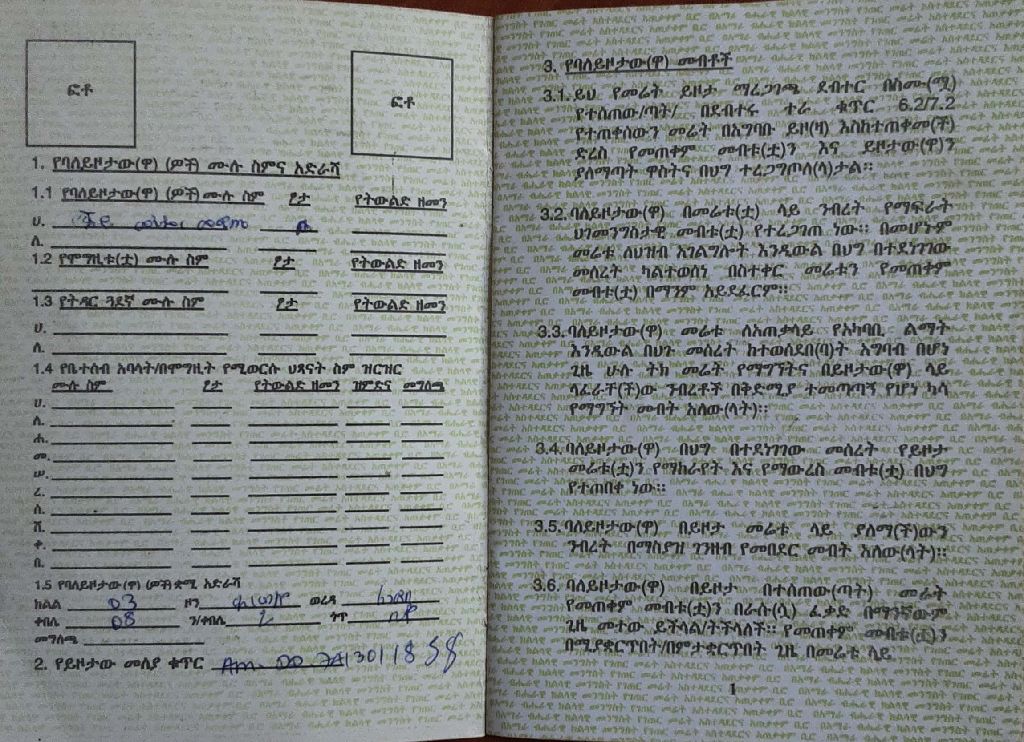 ፎቶ
ፎቶ
1. የባለይዞታው(ዋ) (ዎች) ሙሉ ስምና አድራሻ
1.1 የባለይዞታው(ዋ) (ዎች) ሙሉ ስም ፆታ የትውልድ ዘመን
ሀ.
ለ.
1.2 የሞግዚቱ(ቷ) ሙሉ ስም ፆታ የትውልድ ዘመን
1.3 የትዳር ጓደኛ ሙሉ ስም ፆታ የትውልድ ዘመን
ሀ.
ለ.
1.4 የቤተሰብ አባላት/በሞግዚት የሚወርሱ ህጻናት ስም ዝርዝር
ሙሉ ስም ፆታ የትውልድ ዘመን ዝምድና መግለጫ
ሀ.
ለ.
ሐ.
መ.
ሠ.
ረ.
ሰ.
ሸ.
ቀ.
በ.
1.5 የባለይዞታው(ዋ) (ዎች) ቋሚ አድራሻ
ክልል 03 ዞን ወረዳ
ቀበሌ 08 ን/ቀበሌ ጎጥ
መግለጫ
2. የይዞታው መለያ ቁጥር
3. የባለይዞታው(ዋ) መብቶች
3.1. ይህ የመሬት ይዞታ ማረጋገጫ ደብተር በስሙ(ሟ)
የተሰጠው/ጣት/ በደብተሩ ተራ ቁጥር 6.2/7.2
የተጠቀሰውን መሬት በአግባቡ ይዞ(ዛ) እስከተጠቀመ(ች)
ድረስ የመጠቀም መብቱ(ቷ)ን እና ይዞታው(ዋ)ን
ያለማጣት ዋስትና በህግ ተረጋግጦለ(ላ)ታል።
3.2. ባለይዞታው(ዋ) በመሬቱ(ቷ) ላይ ንብረት የማፍራት
ህገመንግስታዊ መብቱ(ቷ) የተረጋገጠ ነው። በመሆኑም
መሬቱ ለህዝብ አገልግሎት እንዲውል በህግ በተደነገገው
መሰረት ካልተወሰነ በስተቀር መሬቱን የመጠቀም
መብቱ(ቷ) በማንም አይደፈርም።
3.3. ባለይዞታው(ዋ) መሬቱ ለአጠቃላይ የአካባቢ ልማት
እንዲውል በህጉ መሰረት ከተወሰደበ(ባ)ት አግባብ በሆነ
ጊዜ ሁሉ ትክ መሬት የማግኘትና በይዞታው(ዋ) ላይ
ላፈራቸ(ች)ው ንብረቶች በቅድሚያ ተመጣጣኝ የሆነ ካሳ
የማግኘት መብት አለው(ላት)።
3.4. ባለይዞታው(ዋ) በህግ በተደነገገው መሰረት የይዞታ
መሬቱ(ቷ)ን የማከራየት እና የማውረስ መብቱ(ቷ) በህግ
የተጠበቀ ነው።
3.5. ባለይዞታው(ዋ) በይዞታ መሬቱ ላይ ያለማ(ች)ውን
ንብረት በማስያዝ ገንዘብ የመበደር መብት አለው(ላት)።
3.6. ባለይዞታው(ዋ) በይዞታ በተሰጠው(ጣት) መሬት
የመጠቀም መብቱ(ቷ)ን በራሱ(ሷ) ፈቃድ በማንኛውም
ጊዜ መተው ይችላል/ትችላለች። የመጠቀም መብቱ(ቷ)ን
በሚያቋርጥበት/በምታቋርጥበት ጊዜ በመሬቱ ላይ
1